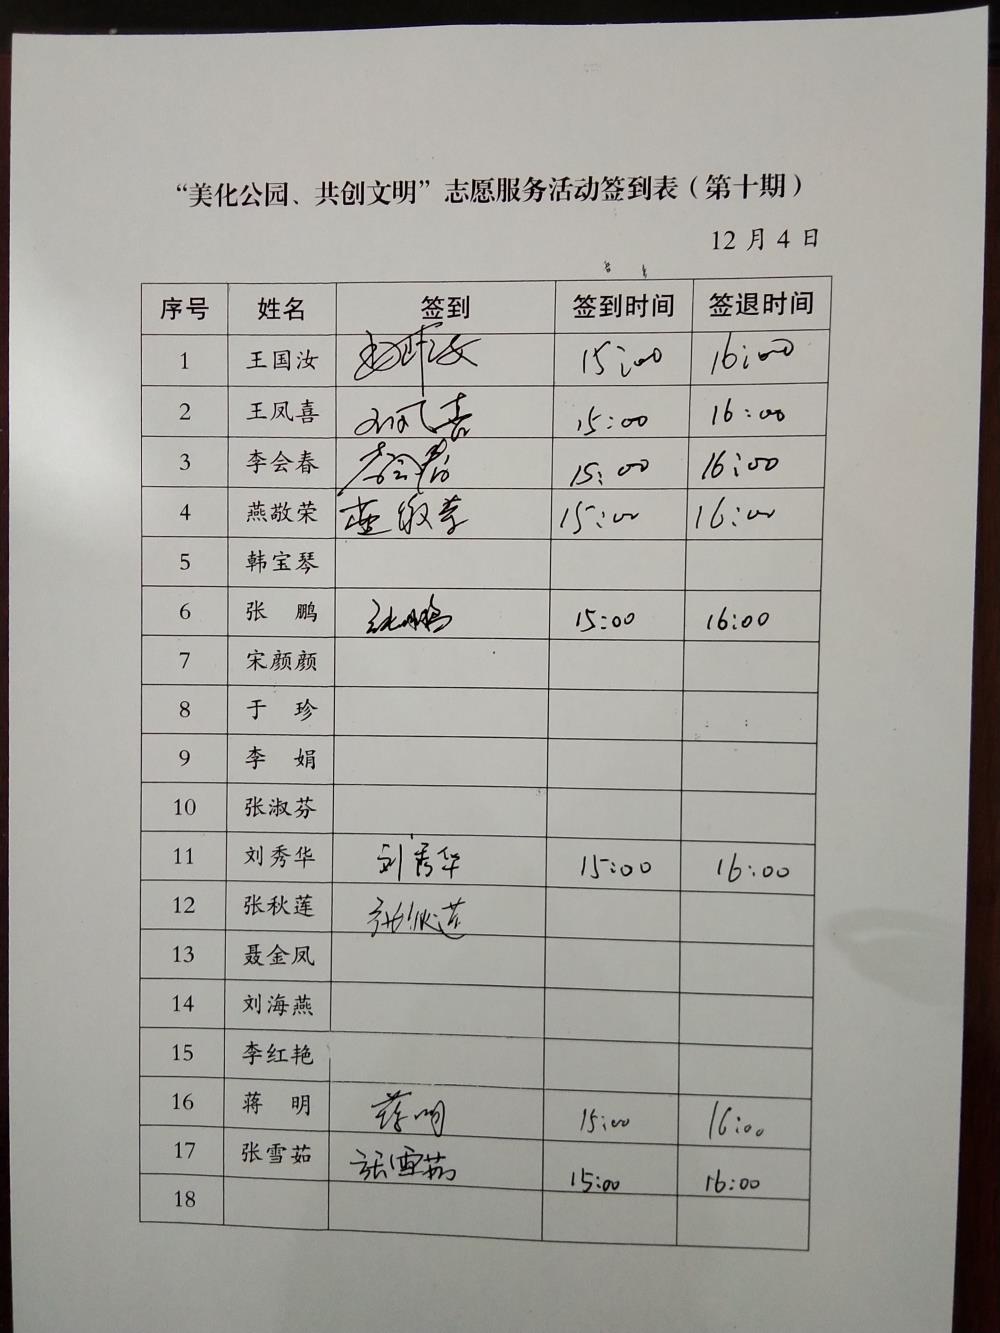 “美化公园、共创文明”志愿服务活动签到表（第十期）
12 月 4 日
序号 姓名 签到 签到时间 签退时间
1 王国汝 15:00 16:00
2 王凤喜 王凤喜 15:00 16:00
3 李会春 李会春 15:00 16:00
4 燕敬荣 燕敬荣 15:00 16:00
5 韩宝琴
6 张 鹏 张鹏 15:00 16:00
7 宋颜颜
8 于 珍
9 李 娟
10 张淑芬
11 刘秀华 刘秀华 15:00 16:00
12 张秋莲 张秋莲
13 聂金凤
14 刘海燕
15 李红艳
16 蒋 明 蒋明 15:00 16:00
17 张雪茹 张雪茹 15:00 16:00
18